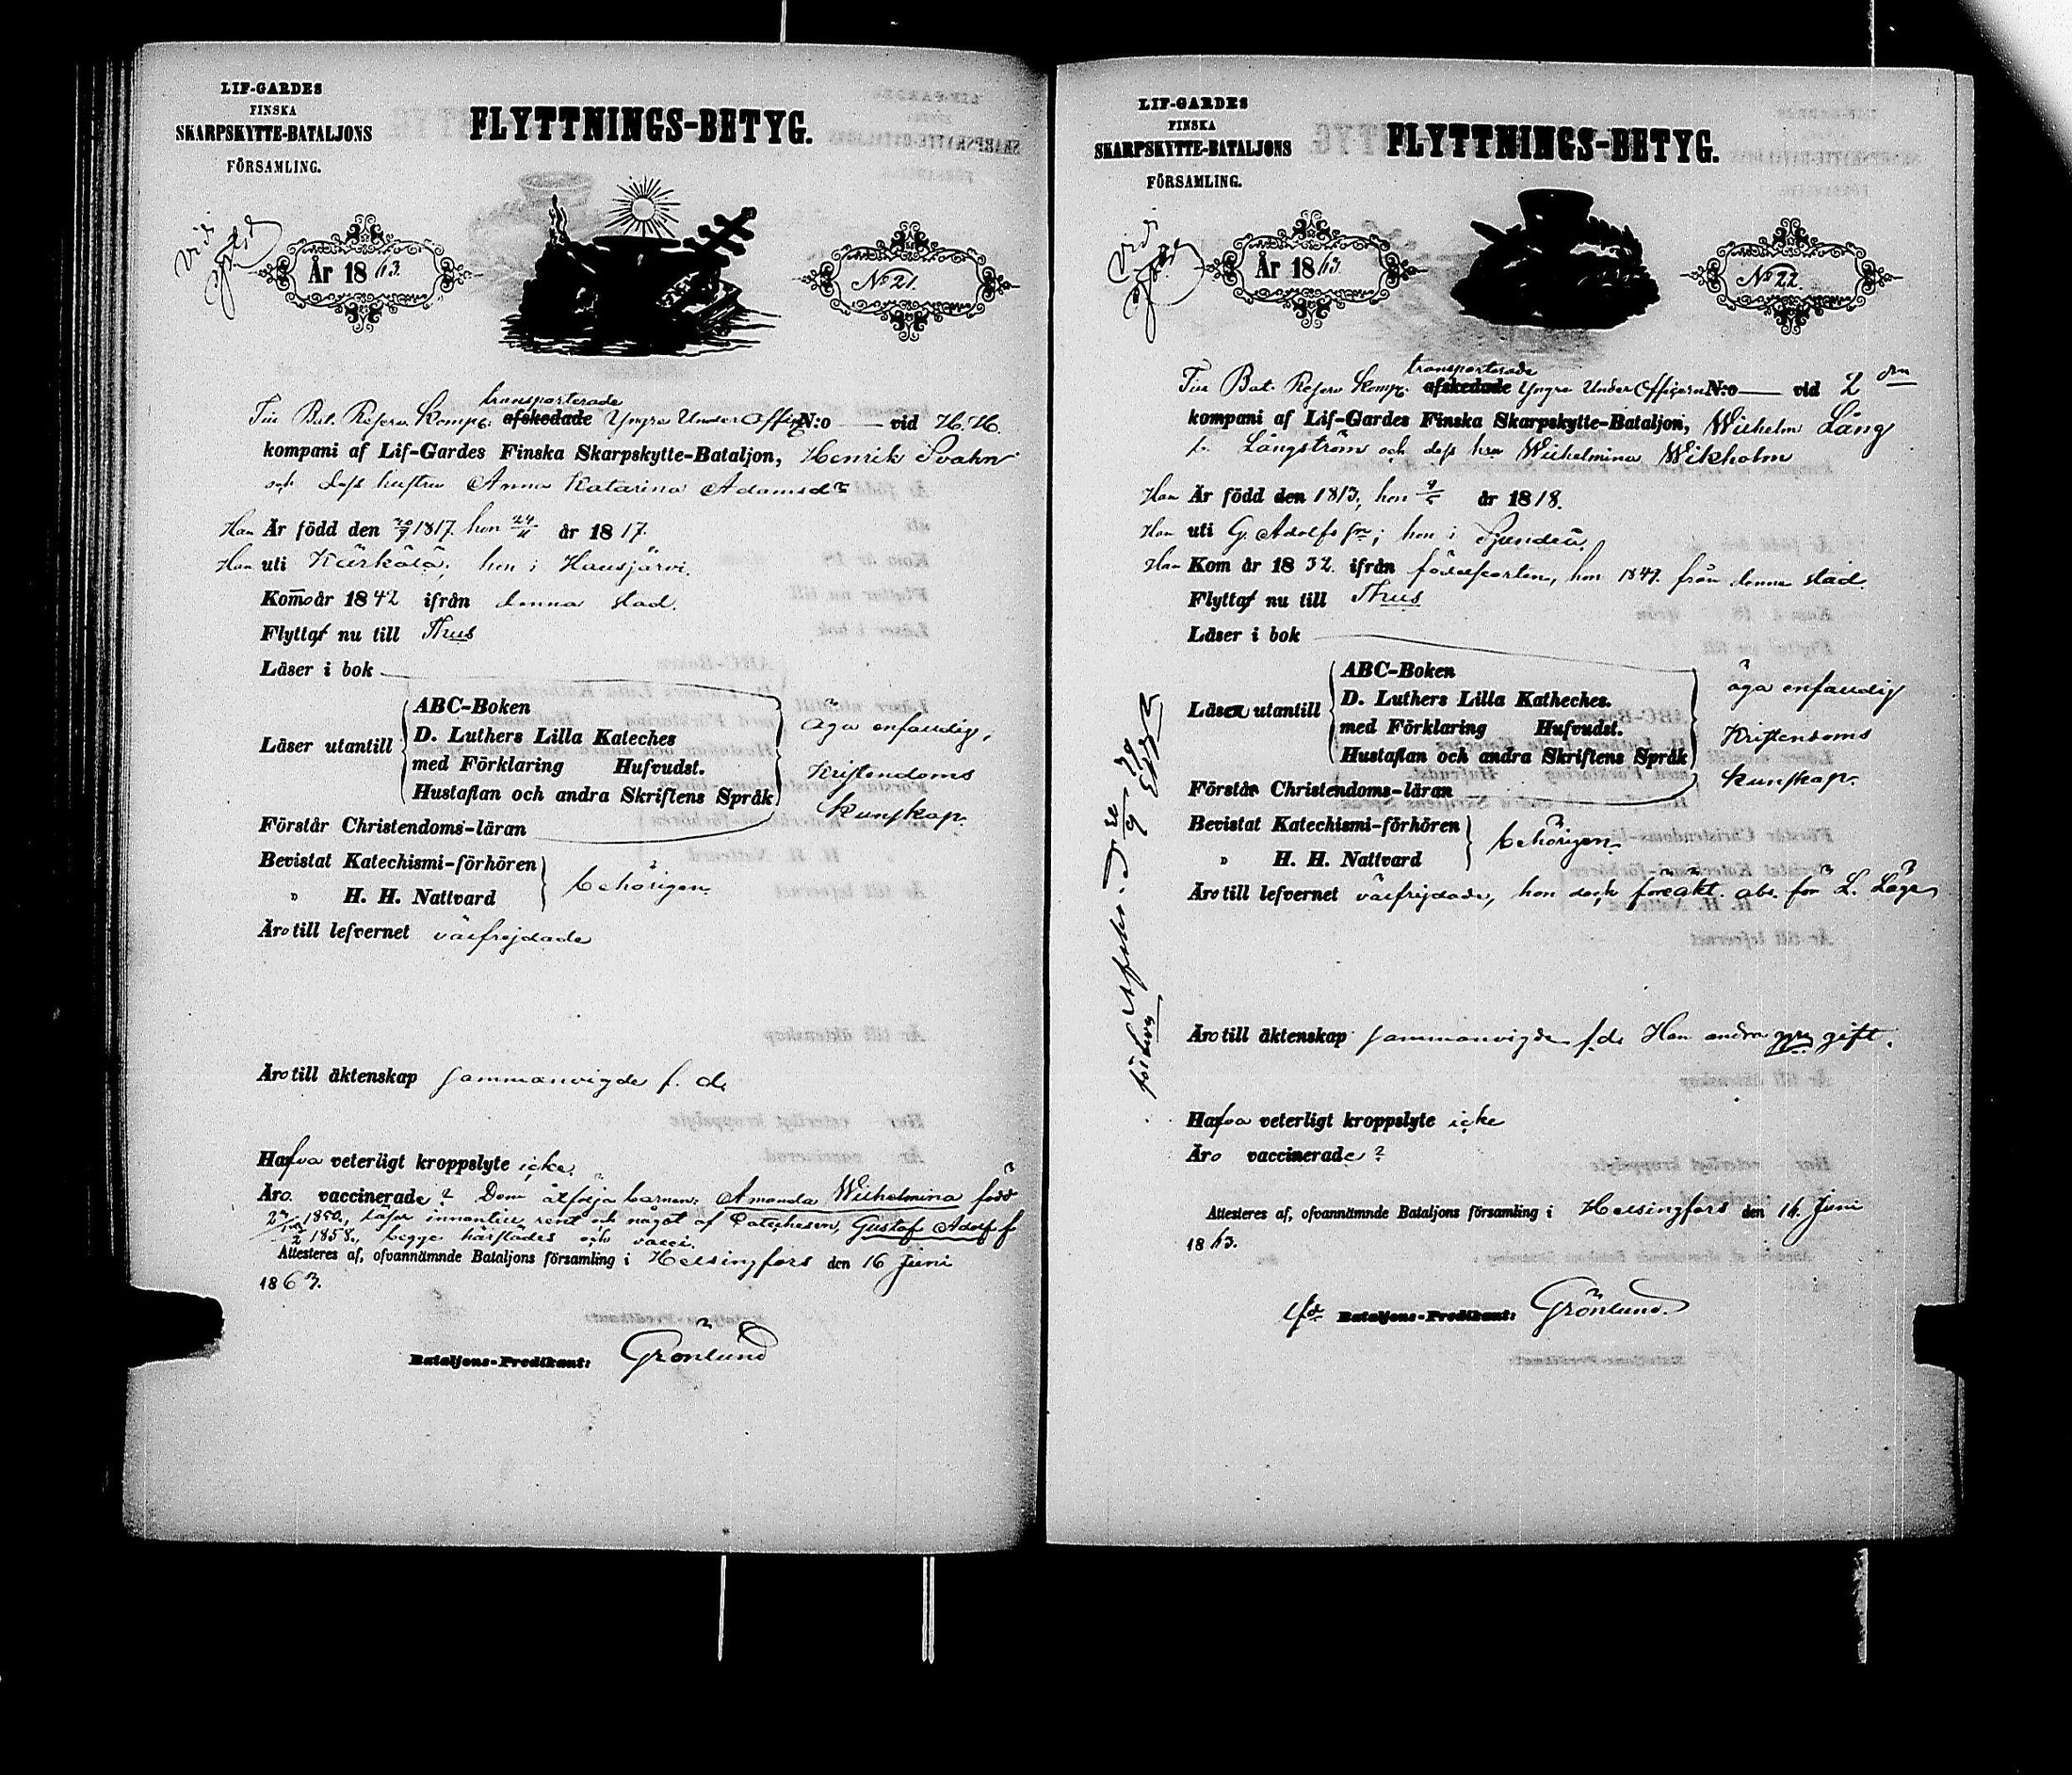 LIF-GARDES
FINSKA
SKARPSKYTTE-BATALJONS
FÖRSAMLING.
FLYTTNINGS-BETYG.
Vidi
År 1863.
No 21.
transporterade
Till Bat. Reserv Komp. afskedade Yngre Under Offic N:o — vid H. H.
kompani af Lif-Gardes Finska Skarpskytte-Bataljon, Henrik Svahn
och dess hustru Anna Katarina Adamsdr
Han Är född den 20/7 1817. hon 24/11 år 1817.
Han uti Kärkölä, hon i Hausjärvi.
Komo år 1842 ifrån denna stad.
Flytta nu till Thus
Läser i bok
Läser utantill
ABC-Boken
D. Luthers Lilla Kateches
med Förklaring Hufvudst.
Hustaflan och andra Skriftens Språk
äga enfaldig
Kristendoms
kunskap.
Förstår Christendoms-läran
Bevistat Katechismi-förhören
" H. H. Nattvard
behörigen.
Äro till lefvernet välfrejdade
Äro till äktenskap sammanvigde f. d.
Hafva veterligt kroppslyte icke.
Äro vaccinerade? Dem åtfölja barnen: Amanda Wilhelmina född
1850., läser innantill rent och något af Catechesen, Gustaf Adolf f
1858., begge härstädes och vacci.
Attesteres af, ofvannämnde Bataljons församling i Helsingfors den 16 Juni
1863.
Bataljons-Predikant: Grönlund
LIF-GARDES
FINSKA
SKARPSKYTTE-BATALJONS
FÖRSAMLING.
FLYTTNINGS-BETYG.
Vidi
År 1863.
No 22.
transporterade
Till Bat. Reserv Komp. afskedade Yngre Under Officern N:o — vid 2 dra
kompani af Lif-Gardes Finska Skarpskytte-Bataljon, Wilhelm Lång
f. Långström och dess hru Wilhelmina Wikholm
Han Är född den 1813, hon 9/5 år 1818.
Han uti G. Adolfs sn; hon i Sjundeå.
Han Kom år 1832. ifrån födelseorten, hon 1847. från denna stad
Flytta nu till Thus
Läser i bok
Läser utantill
ABC-Boken
D. Luthers Lilla Katheches.
med Förklaring Hufvudst.
Hustaflan och andra Skriftens Språk
äga enfaldig
Kristendoms
kunskap.
Förstår Christendoms-läran
Bevistat Katechismi-förhören
" H. H. Nattvard
behörigen.
Äro till lefvernet välfrejdade, hon dock föräkt. abs. för L. Läge
Äro till äktenskap sammanvigde f. d. Han andra ggn gift.
Hafva veterligt kroppslyte icke
Äro vaccinerade?
Attesteres af, ofvannämnde Bataljons församling i Helsingfors den 16 Juni
1863.
Bataljons-Predikant: Grönlund.